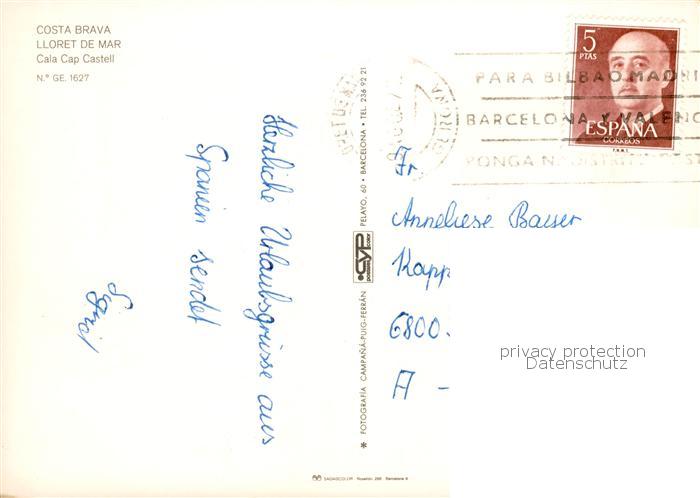 COSTA BRAVA
LLORET DE MAR
Cala Cap Castell
N.° GE. 1627
Herzliche Urlaubsgrüsse aus
Spanien sendet
* FOTOGRAFÍA CAMPAÑÁ-PUIG-FERRÁN
CYP
PELAYO, 60 • BARCELONA • TEL. 236 92 21
SADAGCOLOR
5
PTAS
ESPAÑA
CORREOS
PARA BILBAO MADRI
BARCELONA Y VALENC
PONGA
Fr
Anneliese
Kapp
6800.
A -
privacy protection
Datenschutz